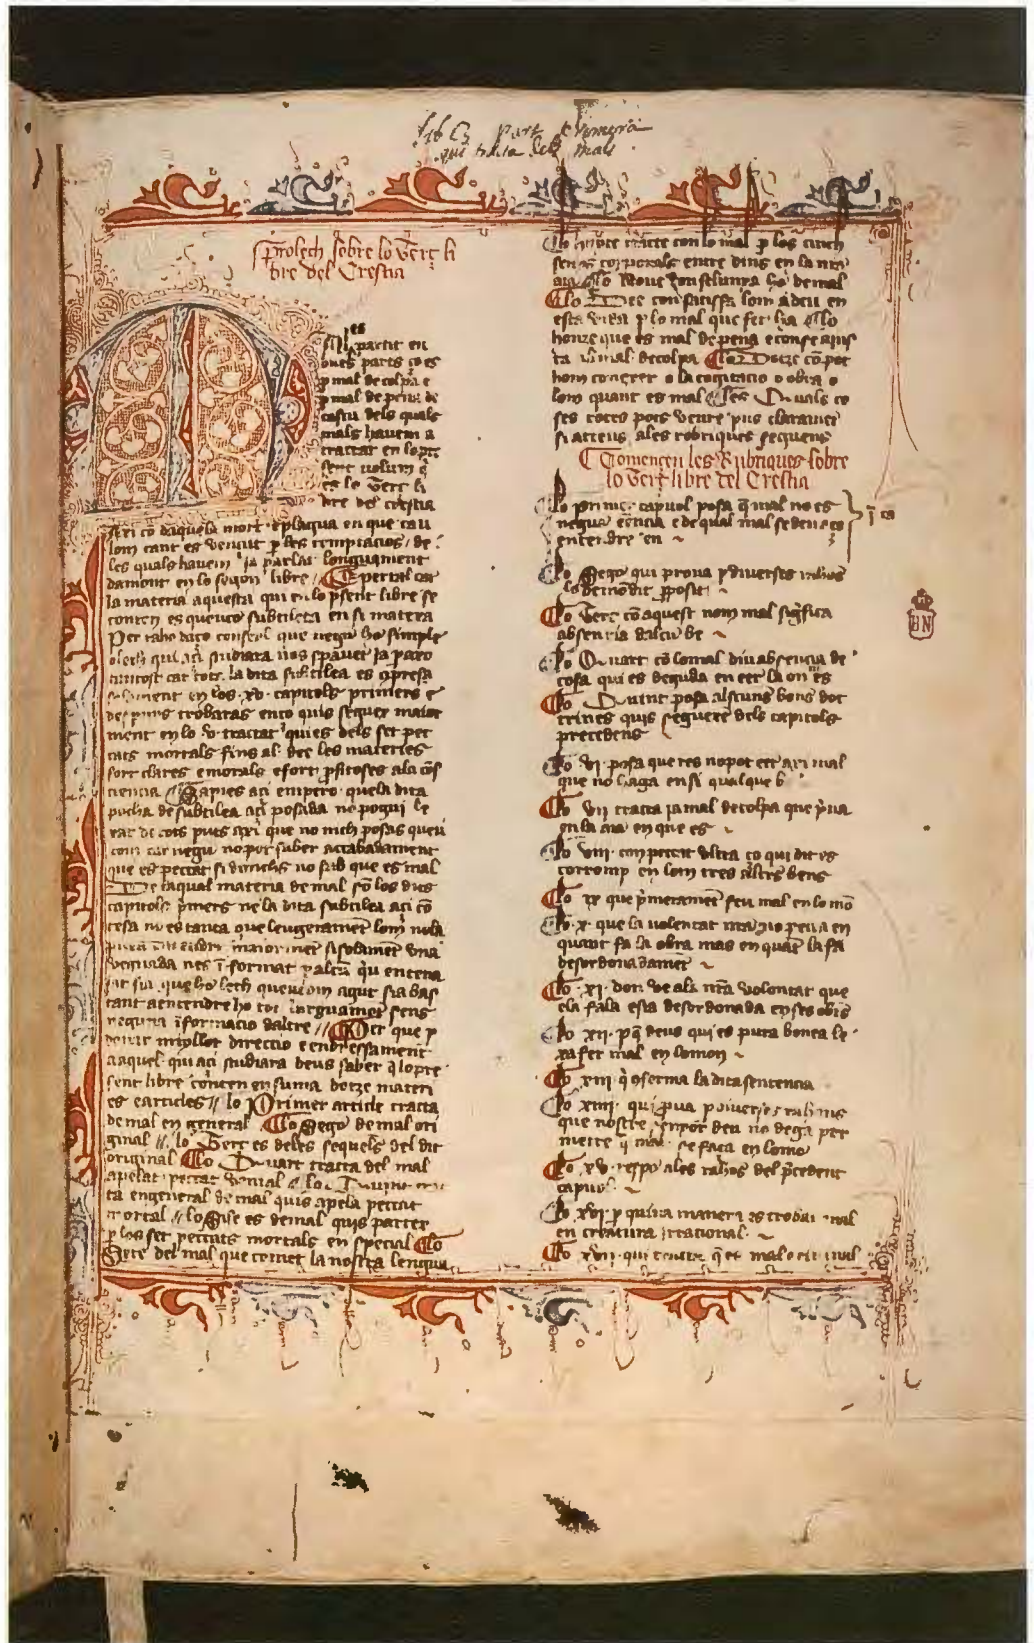 part primera
qui tracta del mal
Prolech sobre lo Terç li
bre del Crestia
Mal es
partit en
dues parts ço es
mal de colpa e
mal de pena de
cascu dels quals
mals havem a
tractar en lo pre
sent volum q
es lo Terç li
bre del crestia
Axi co daquela mort e plagua en que cau
lom cant es vencut p les temptacios de
les quals havem ja parlat longuament
damont en lo segon libre // E pertal car
la materia aquesta qui en lo psent libre se
conten es quecuco subtileta en si matexa
Per raho daço consell que negu ho simple
olech qui açi studiara nos spavet ja pero
car tota la dita subtilea es compresa
solament en los xv capitols primers e
despuys trobaras enço quis seguex maior
ment en lo v tractat qui es dels set pec
cats mortals fins al dee les materies
fort clares e morals e fort pfitoses ala cos
ciencia Sapies açi empero quela dita
pocha de subtilea açi posada no pogui le
xar de tots puts axi que no nich posas queu
com car negu no pot saber acabadament
que es peccat si donchs no sab que es mal
De laqual materia de mal so los dus
capitols pmers ne la dita subtilea açi co
tesa no es tanta que leugerament lom nola
maior ment si solament una
veguada nes iformat palcu qu entena
que ho lech quecom agut sia bas
tant a entendre ho tot larguament sens
neguna iformacio daltre // Per que p
donar mijllor direccio e endressament
aaquel qui açi studiara deus saber q lo pre
sent libre conten en suma dotze materi
es e articles // lo Primer article tracta
de mal en general Lo Sego de mal ori
ginal // lo Terç es deles sequeles del dit
original Lo Quart tracta del mal
apelat peccat venial Lo Quint trac
ta en general de mal quis apela peccat
mortal // lo Sise es de mal quis partex
p los set peccats mortals en special Lo
Sete del mal que comet la nostra lengua
Lo huyte tracte con lo mal p los cinch
senys corporals entre dins en la nra
aia Lo Nove con se lunya ho de mal
Lo Dee con satisfa lom a deu en
esta vida p lo mal que fet ha Lo
honze que es mal de pena e con se ajus
ta al mal de colpa Lo Dotze co pot
hom conexer o la cogitacio o obra o
lom quant es mal Les Quals co
ses totes pots veure pus clarament
si attens ales robriques seguens
Comencen les Rubriques sobre
lo Terç libre del Crestia
Lo primer capitol posa q mal no es
negua eencia e de qual mal se deu açi
entendre en
Lo Sego qui prova p diverses rahos
lo demondit pposit
Lo Terç co aquest nom mal signifca
absencia dalcu be
Lo Quart co lo mal diu absencia de
cosa qui es deguda en eer la on es
Lo Quint posa alscuns bons doc
trines quis seguexe dels capitols
precedens
Lo vi posa que res no pot eer axi mal
que no haga en si qualque b
Lo vii tracta ja mal de colpa que priva
en la aia en que es
Lo viii con peccat ultra ço qui dit es
corromp en lom tres altres bens
Lo ix que primerament feu mal en lo mo
Lo x que la volentat nra no pecca en
quant fa la obra mas en quant la fa
desordonadament
Lo xi don ve ala nra volentat que
ela fala esta desordonada en ses obres
Lo xii p q deus qui es pura bonea le
xa fer mal en lo mon
Lo xiii q conferma la dita sentencia
Lo xiiii qui pva p diverses rahons
que nostre senyor deu no dega per
metre q mal se faça en lo mo
Lo xv respo ales rahos del precedent
capitol
Lo xvi p quina manera es trobat mal
en creatura irracional
Lo xvii qui
BN